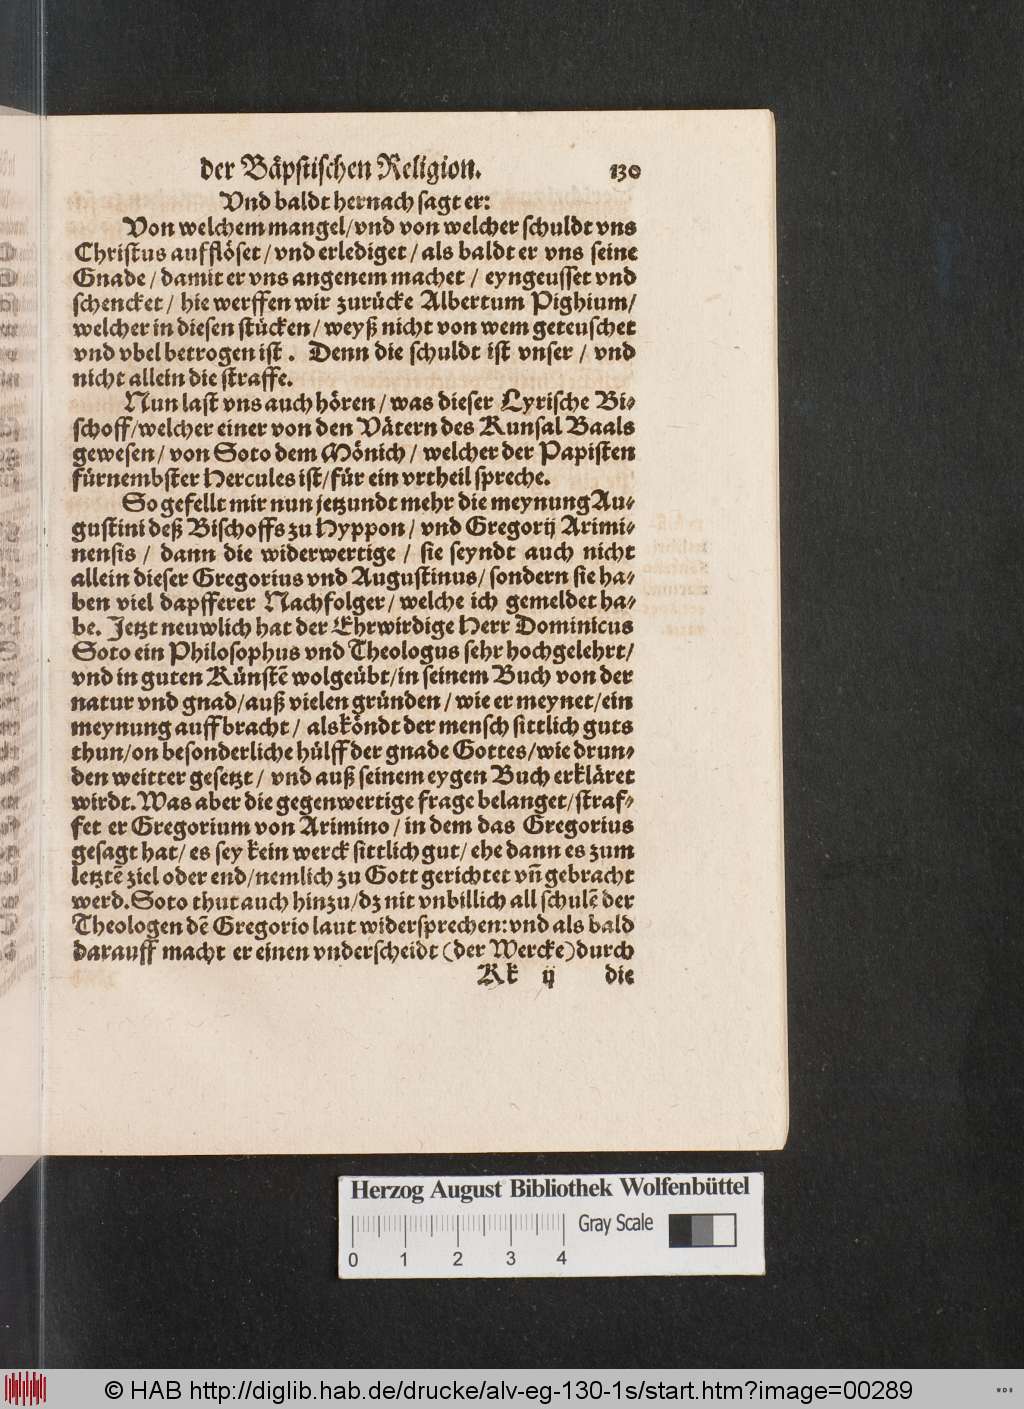 der Bäpstischen Religion. 130
Vnd baldt hernach sagt er:
Von welchem mangel/vnd von welcher schuldt vns
Christus aufflöset/vnd erlediget/als baldt er vns seine
Gnade/damit er vns angenem machet/eyngeusset vnd
schencket/hie werffen wir zurücke Albertum Pighium/
welcher in diesen stücken/weyß nicht von wem geteuschet
vnd vbel betrogen ist. Denn die schuldt ist vnser/vnd
nicht allein die straffe.
Nun last vns auch hören/was dieser Lyrische Bi-
schoff/welcher einer von den Vätern des Kunsal Baals
gewesen/von Soto dem Mönich/welcher der Papisten
fürnembster Hercules ist/für ein vrtheil spreche.
So gefellt mir nun jetzundt mehr die meynung Au-
gustini deß Bischoffs zu Hyppon/vnd Gregorij Arimi-
nensis/dann die widerwertige/sie seyndt auch nicht
allein dieser Gregorius vnd Augustinus/sondern sie ha-
ben viel dapfferer Nachfolger/welche ich gemeldet ha-
be. Jetzt neuwlich hat der Ehrwirdige Herr Dominicus
Soto ein Philosophus vnd Theologus sehr hochgelehrt/
vnd in guten Künstẽ wolgeübt/in seinem Buch von der
natur vnd gnad/auß vielen gründen/wie er meynet/ein
meynung auffbracht/als köndt der mensch sittlich guts
thun/on besonderliche hülff der gnade Gottes/wie drun-
den weitter gesetzt/vnd auß seinem eygen Buch erkläret
wirdt. Was aber die gegenwertige frage belanget/straf-
fet er Gregorium von Arimino/in dem das Gregorius
gesagt hat/es sey kein werck sittlich gut/ehe dann es zum
letztẽ ziel oder end/nemlich zu Gott gerichtet vñ gebracht
werd. Soto thut auch hinzu/dz nit vnbillich all schulẽ der
Theologen dẽ Gregorio laut widersprechen: vnd als bald
darauff macht er einen vnderscheidt (der Wercke) durch
Kk ij die
Herzog August Bibliothek Wolfenbüttel
Gray Scale
0 1 2 3 4
© HAB http://diglib.hab.de/drucke/alv-eg-130-1s/start.htm?image=00289